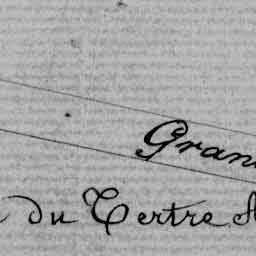 Gran
du Tertre